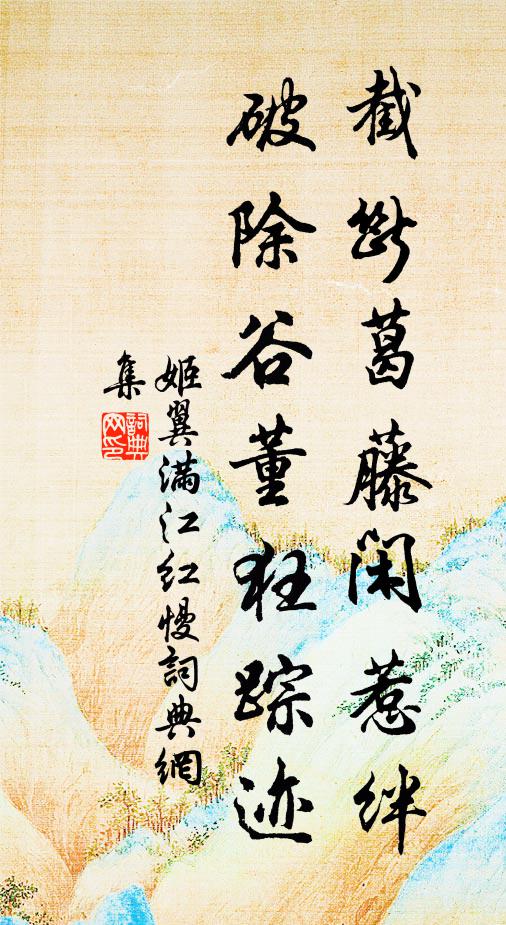 截断葛藤闲惹绊
破除谷董狂踪迹
姬翼满江红慢詞典網
集
詞典
网印